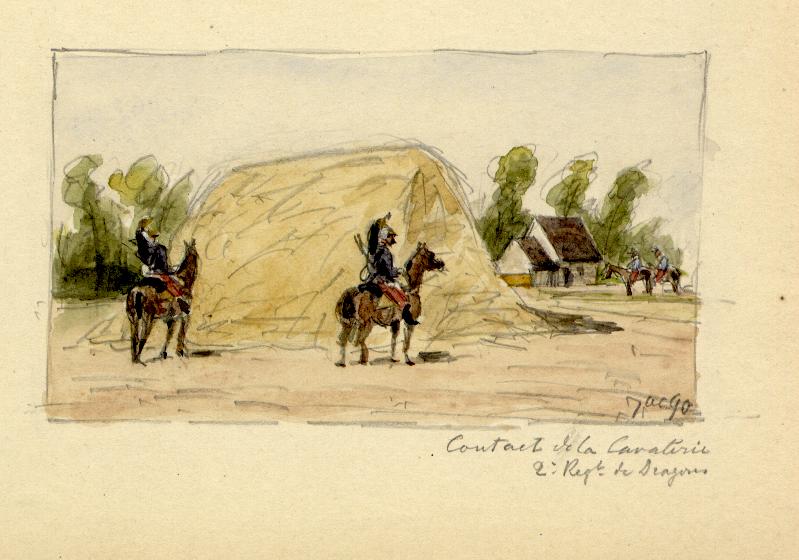 Jacgo
Contact de la Cavalerie
2e Regt de Dragons